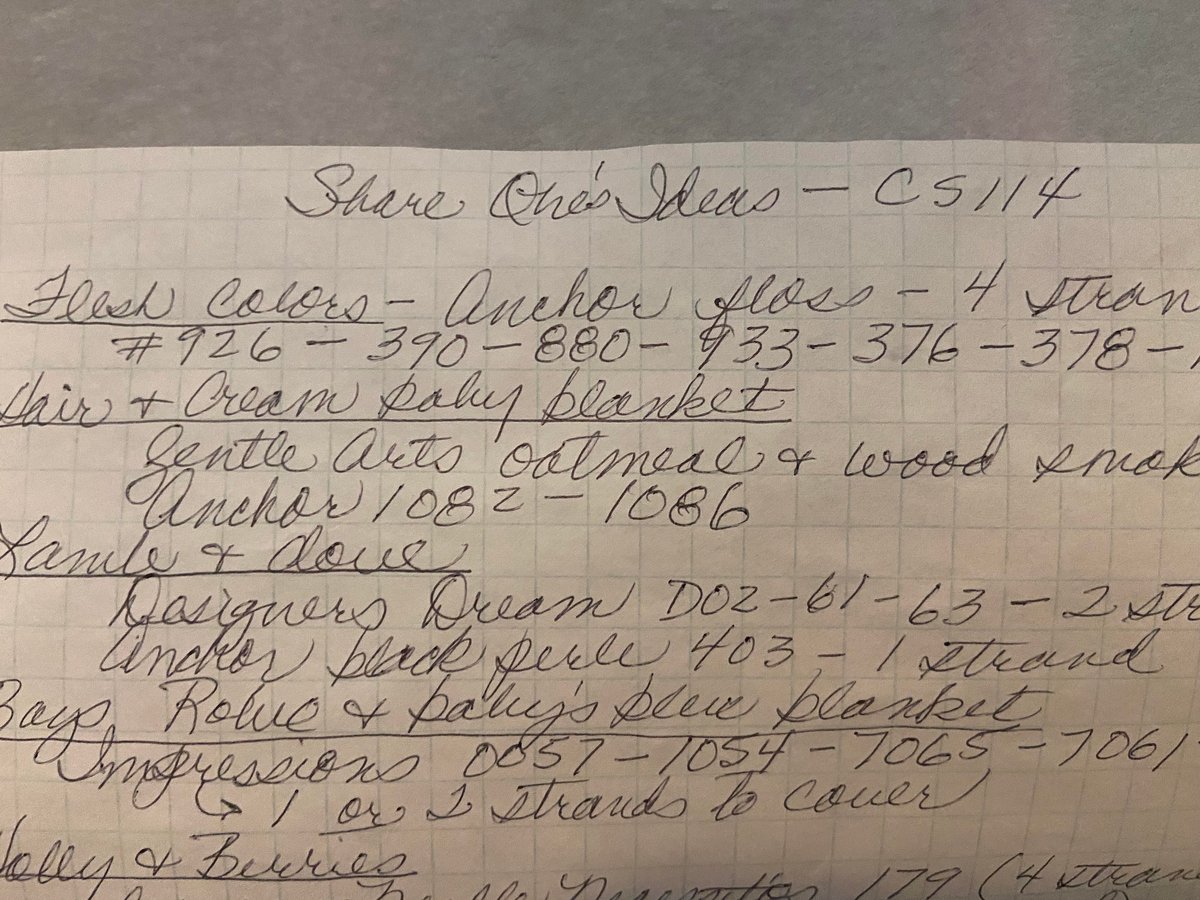 Share One's Ideas — CS114
Flesh Colors - Anchor floss - 4 stran
#926 - 390 - 880 - 933 - 376 - 378 -
Hair & Cream baby blanket
Gentle Arts oatmeal & wood smok
Anchor 1082 - 1086
Lamb & dove
Designers Dream D02 - 61 - 63 - 2 str
Anchor black perle 403 - 1 strand
Boys Robe & baby's blue blanket
Impressions 0057 - 1054 - 7065 - 7061
→ 1 or 2 strands to cover
Holly & Berries
179 (4 stran